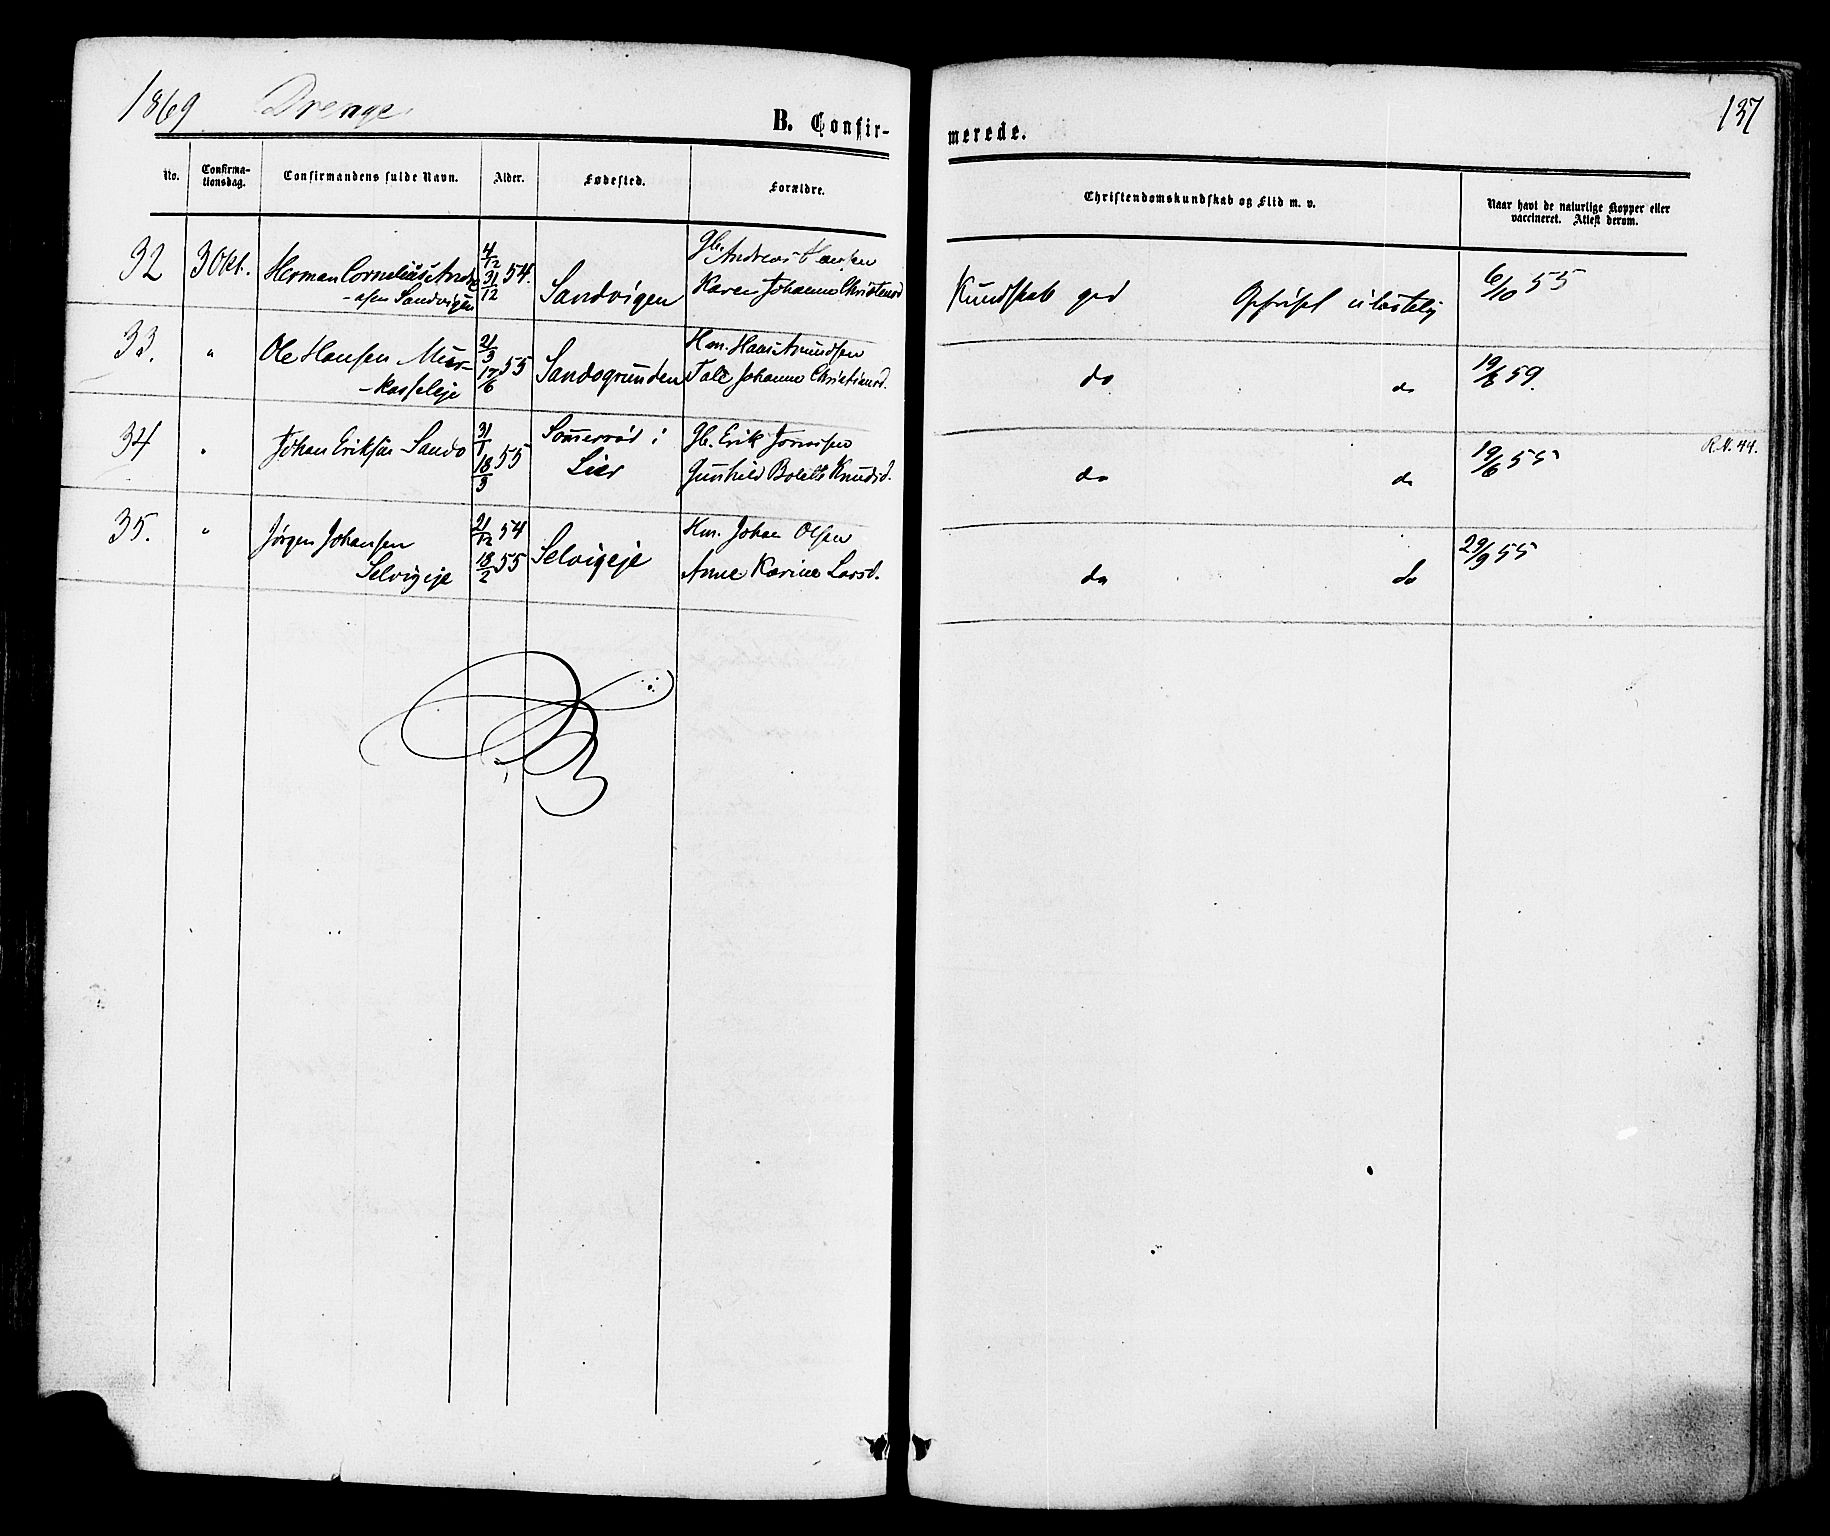 1869 Drenge.
B. Confir-
merede.
137
No.
Confirma-
tionsdag.
Confirmandens fulde Navn.
Alder.
Fødested.
Forældre.
Christendomskundskab og Flid m. v.
Naar havt de naturlige Kopper eller
vaccineret. Attest derom.
32 3 Okt. Herman Cornelius Andre
-asen Sandvigen
4/12 31/12 54.
Sandvigen
Gb. Andreas Hansen
Karen Johanne Christensd
Kundskab god Opførsel ulastelig
6/10 55
33. " Ole Hansen
-kasseleje
21/3 17/6 55
Sandsgrunden
Hm. Hans Amundsen
Tale Johanne Christiansd.
do do
19/8 59.
34 " Johan Eriksen Sando
31/1 18/3 55
Sommerrød i
Lier
Gb. Erik
Gunhild Bolette Knudsd.
do do
19/6 55
R.N. 44.
35. " Jørgen Johansen
Selvigeje
21/12 54
18/2 55
Selvigeje
Hm. Johan Olsen
Anne Karine Larsd.
do do
29/9 55